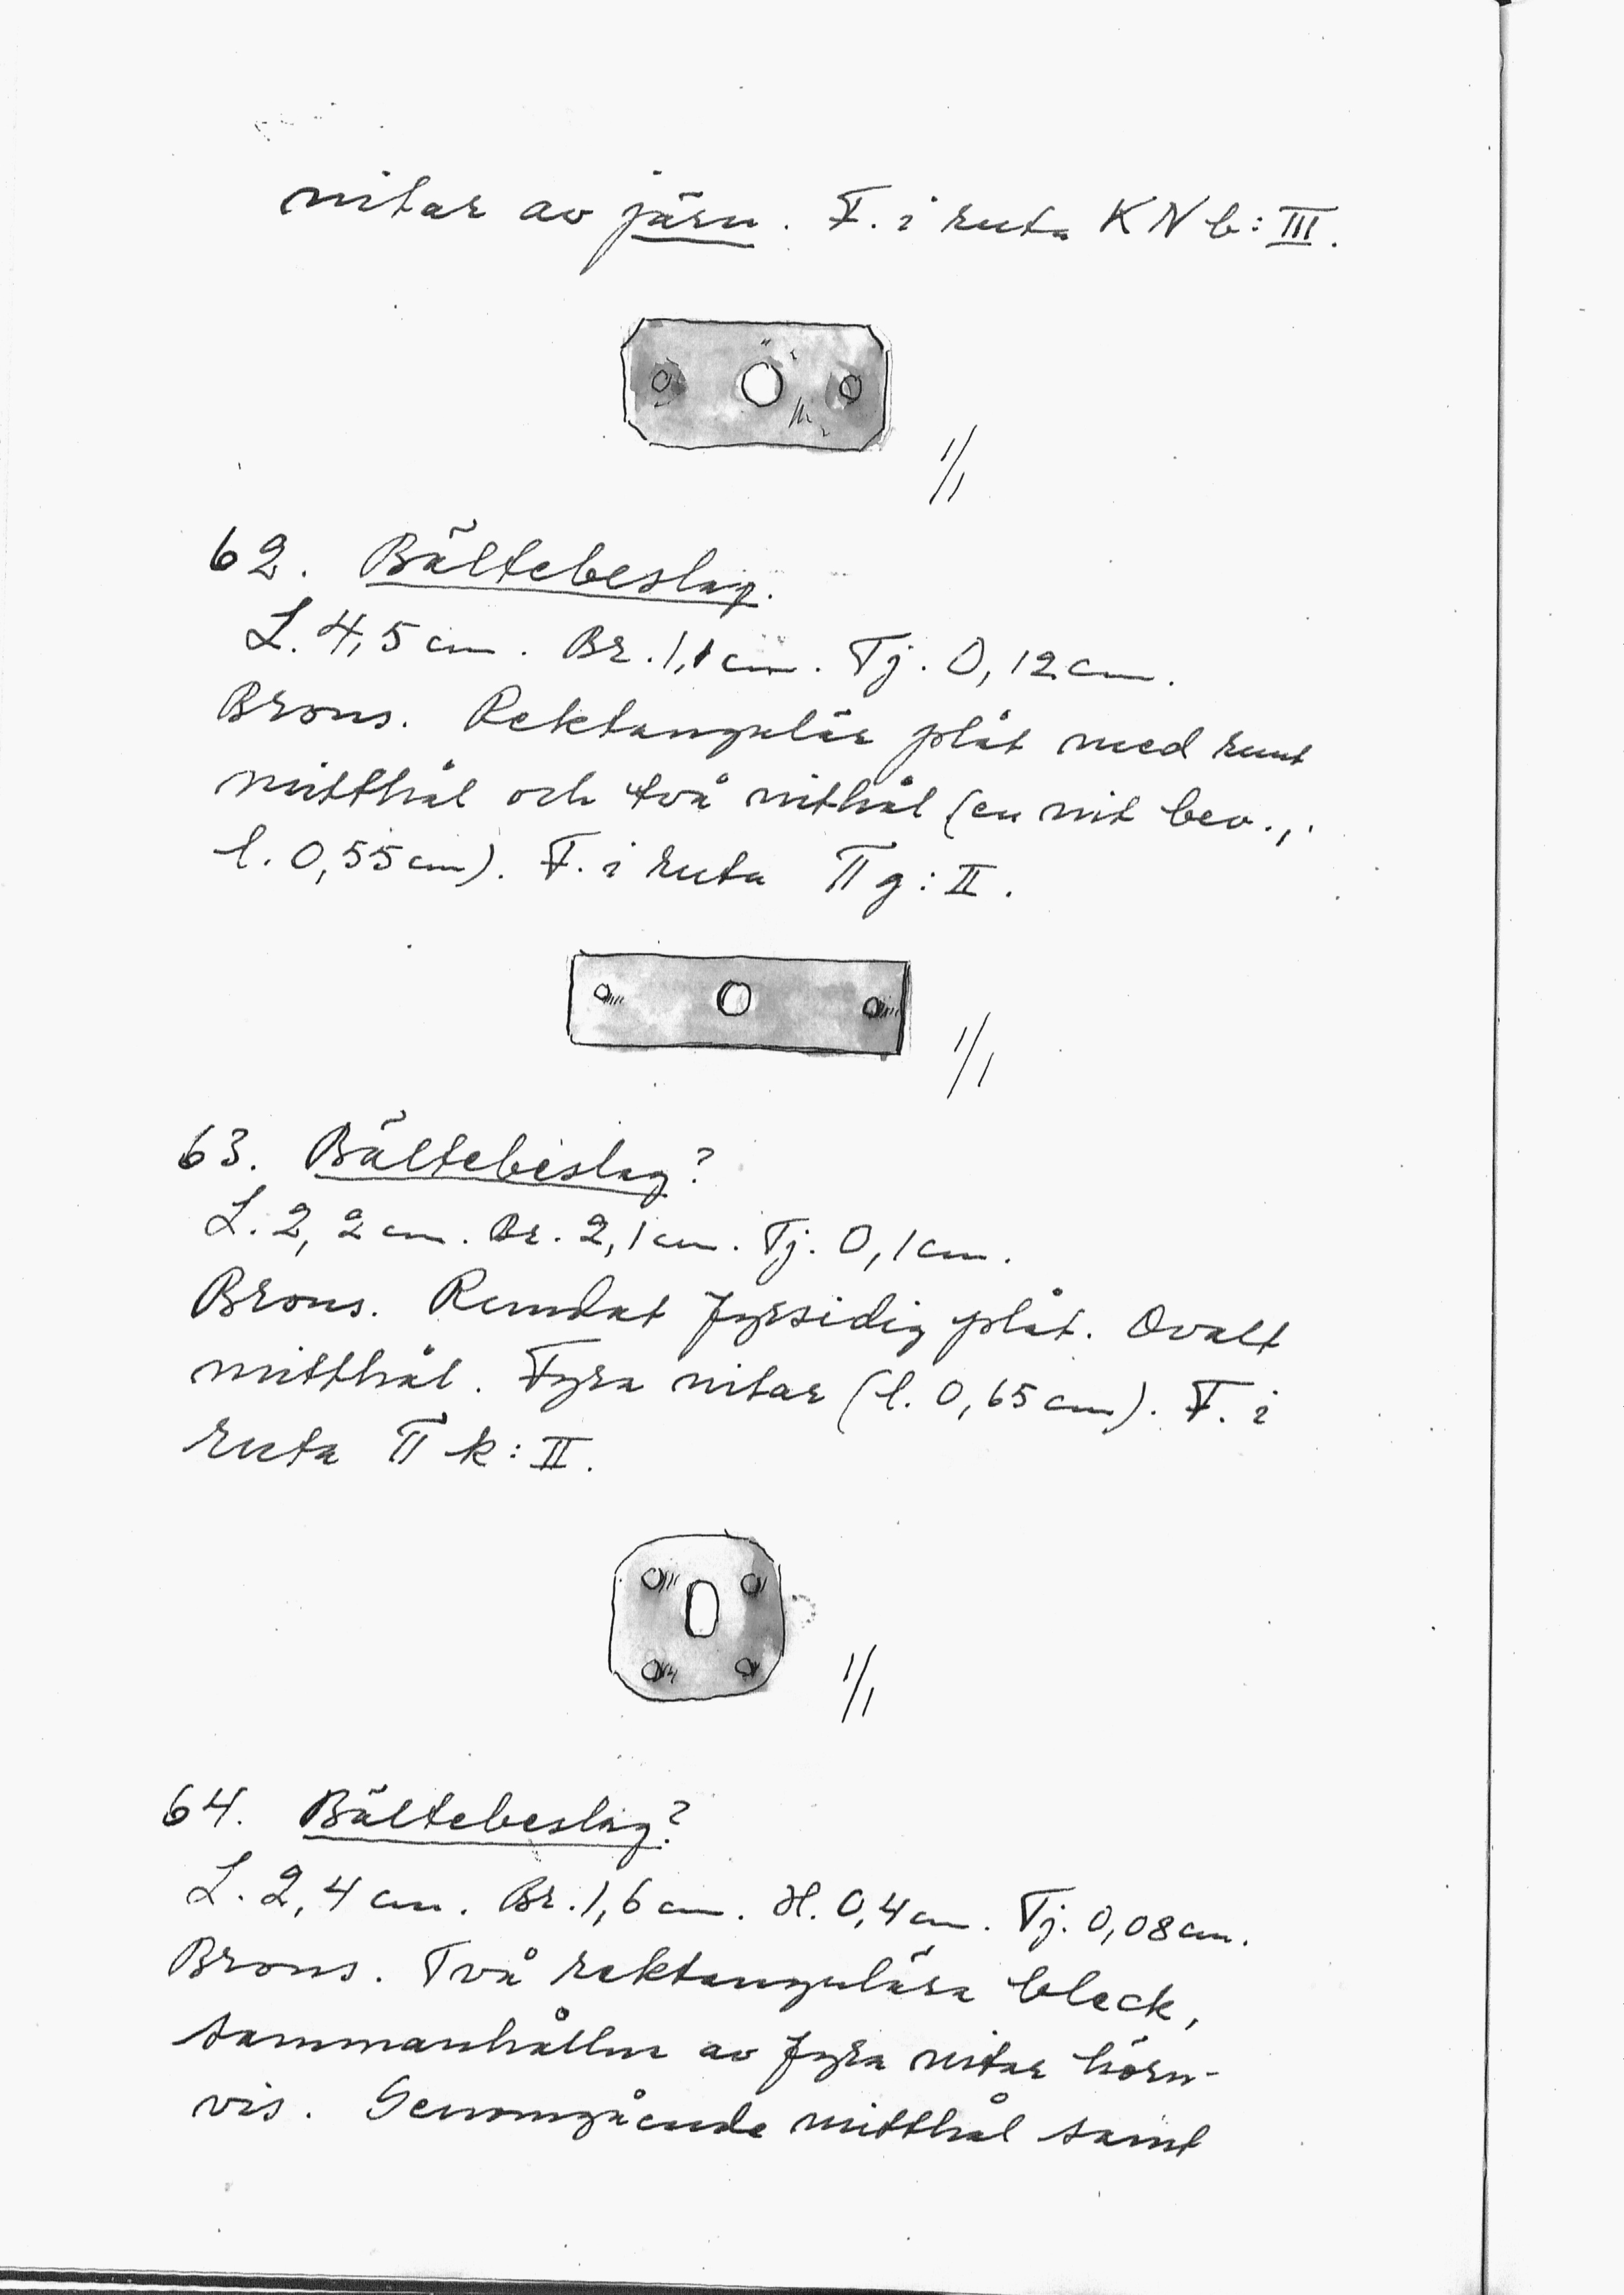 nitar av järn. F. i ruta KN b: III.
1/1
62. Bältebeslag.
L. 4,5 cm. Br. 1,1 cm. Tj. 0,12 cm.
Brons. Rektangulär plåt med runt
mitthål och två nithål (en nit bev.,
l. 0,55 cm). F. i ruta Π g: II.
1/1
63. Bältebeslag?
L. 2,2 cm. Br. 2,1 cm. Tj. 0,1 cm.
Brons. Rundat fyrsidig plåt. Ovalt
mitthål. Fyra nitar (l. 0,65 cm). F. i
ruta Π k: II.
1/1
64. Bältebeslag?
L. 2,4 cm. Br. 1,6 cm. H. 0,4 cm. Tj. 0,08 cm.
Brons. Två rektangulära bleck,
sammanhållna av fyra nitar hörn-
vis. Genomgående mitthål samt